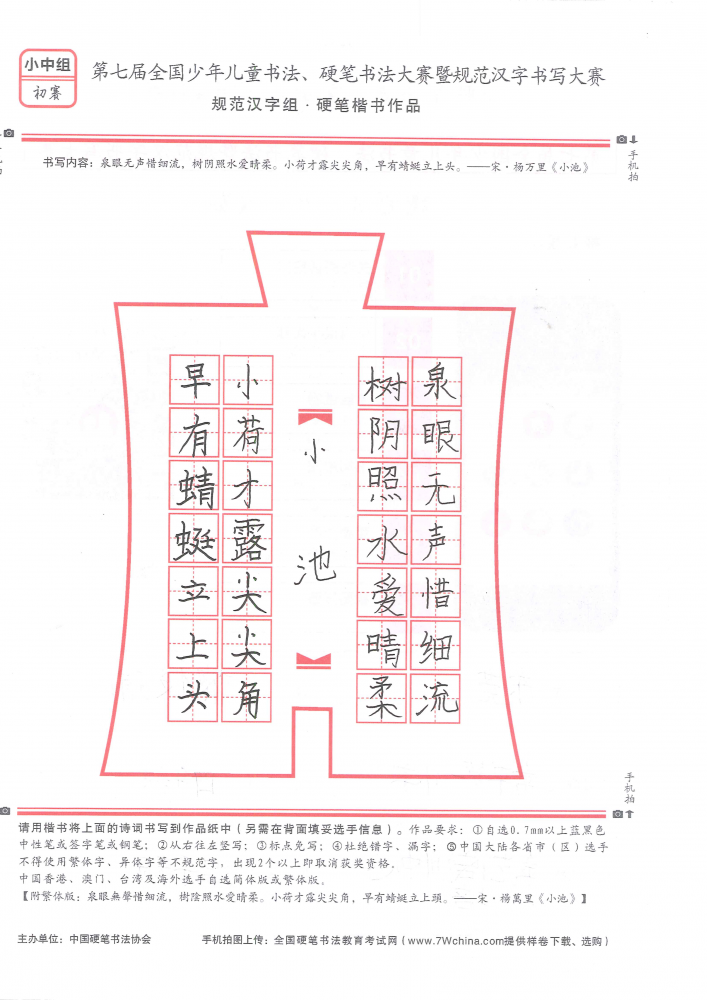 小中组
初赛
第七届全国少年儿童书法、硬笔书法大赛暨规范汉字书写大赛
规范汉字组·硬笔楷书作品
手机拍
书写内容：泉眼无声惜细流，树阴照水爱晴柔。小荷才露尖尖角，早有蜻蜓立上头。——宋·杨万里《小池》
泉眼无声惜细流
树阴照水爱晴柔
小池
小荷才露尖尖角
早有蜻蜓立上头
手机拍
请用楷书将上面的诗词书写到作品纸中（另需在背面填妥选手信息）。作品要求：①自选0.7mm以上蓝黑色
中性笔或签字笔或钢笔；②从右往左竖写；③标点免写；④杜绝错字、漏字；⑤中国大陆各省市（区）选手
不得使用繁体字、异体字等不规范字，出现2个以上即取消获奖资格。
中国香港、澳门、台湾及海外选手自选简体版或繁体版。
【附繁体版：泉眼無聲惜细流，樹陰照水爱晴柔。小荷才露尖尖角，早有蜻蜓立上頭。——宋·楊萬里《小池》】
主办单位：中国硬笔书法协会 手机拍图上传：全国硬笔书法教育考试网（www.7Wchina.com提供样卷下载、选购）